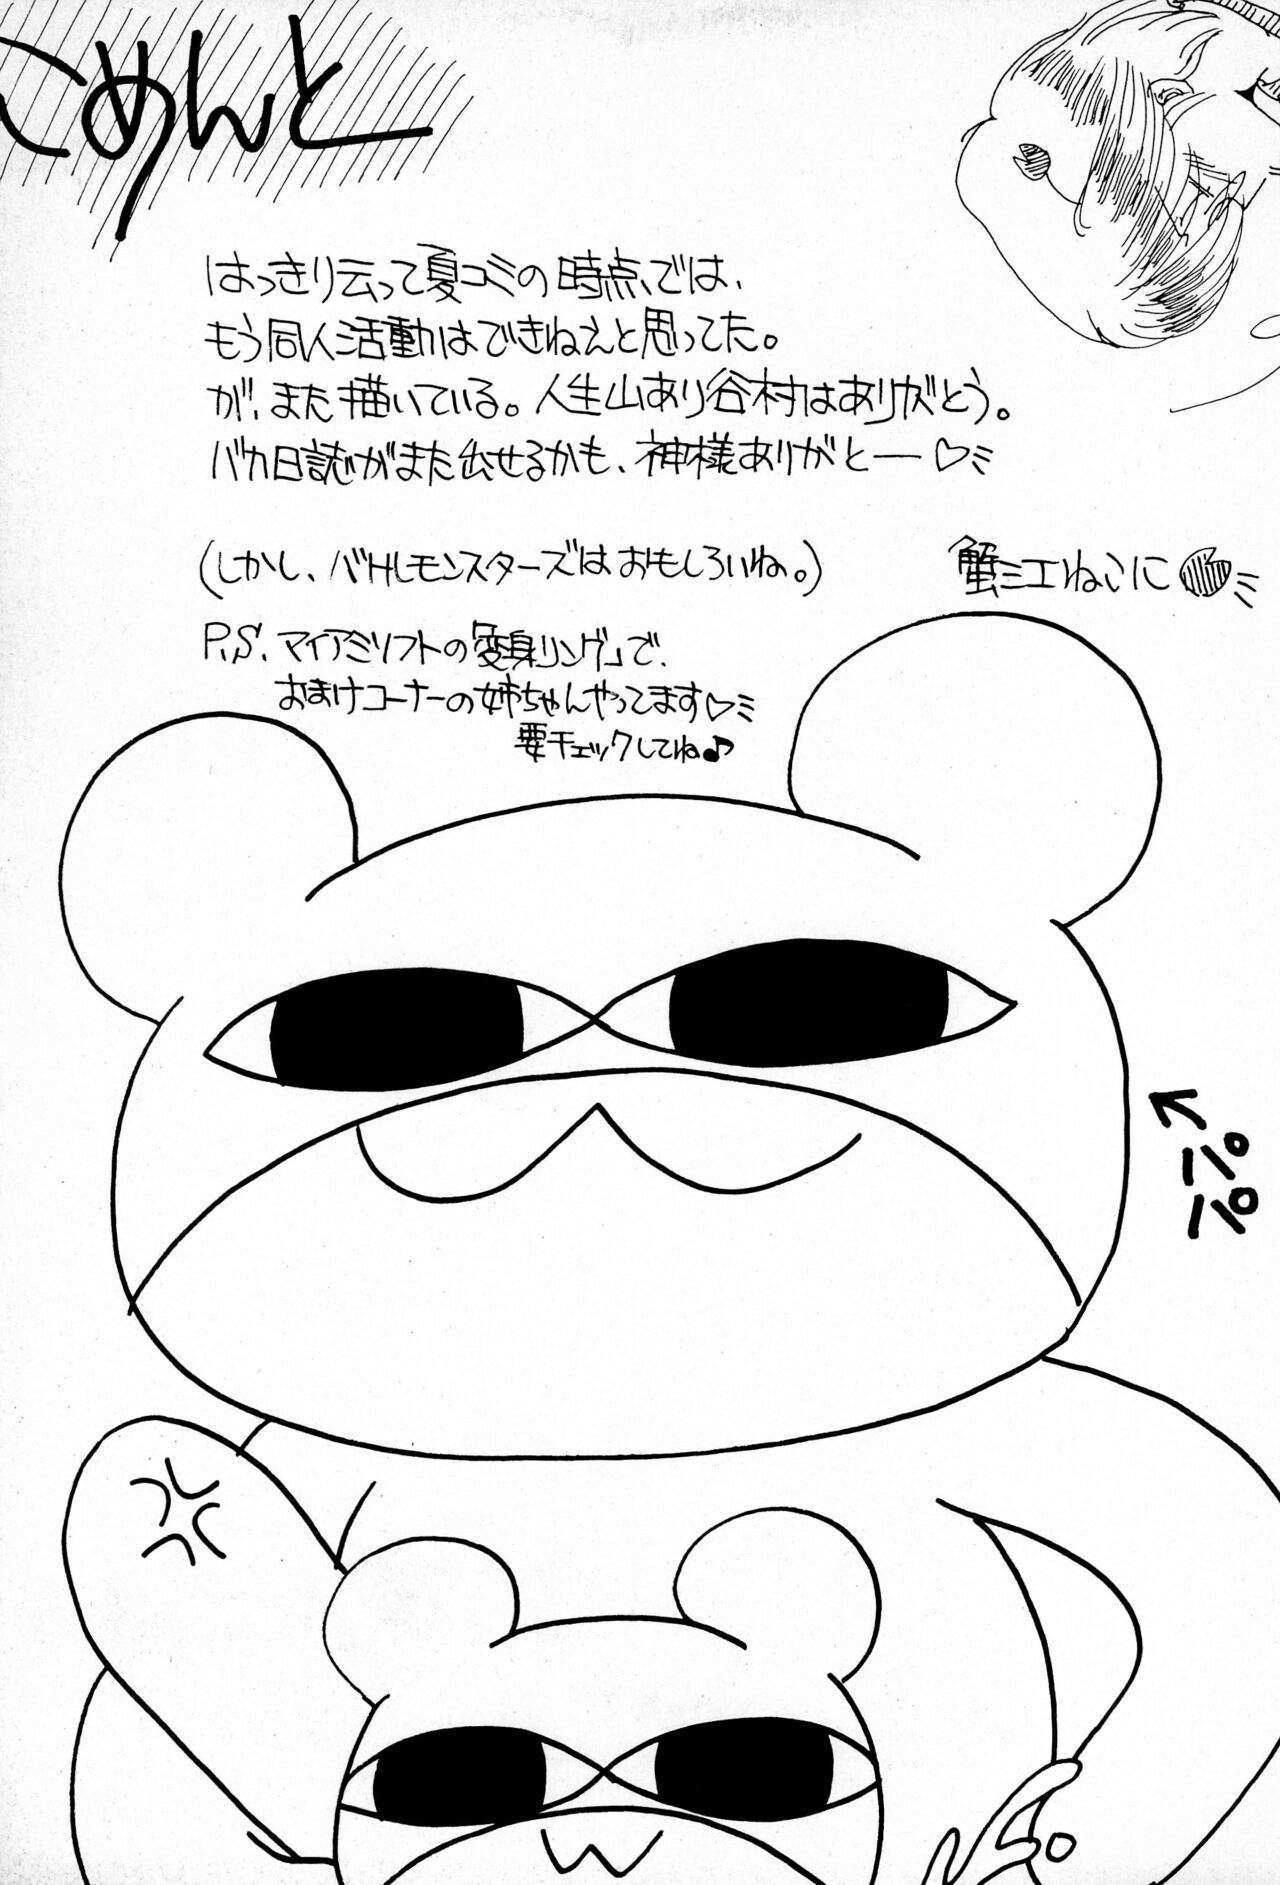 こめんと
はっきり云って夏コミの時点では、
もう同人活動はできねえと思ってた。
が、また描いている。人生山あり谷村はありがとう。
バカ日誌がまた出せるかも、神様ありがとー♡ミ
(しかし、バHLモンスターズはおもしろいね。)
蟹ミエねこに
P.S. マイアミソフトの「変身リング」で、
おまけコーナーの姉ちゃんやってます♡ミ
要チェックしてね♪
パパ